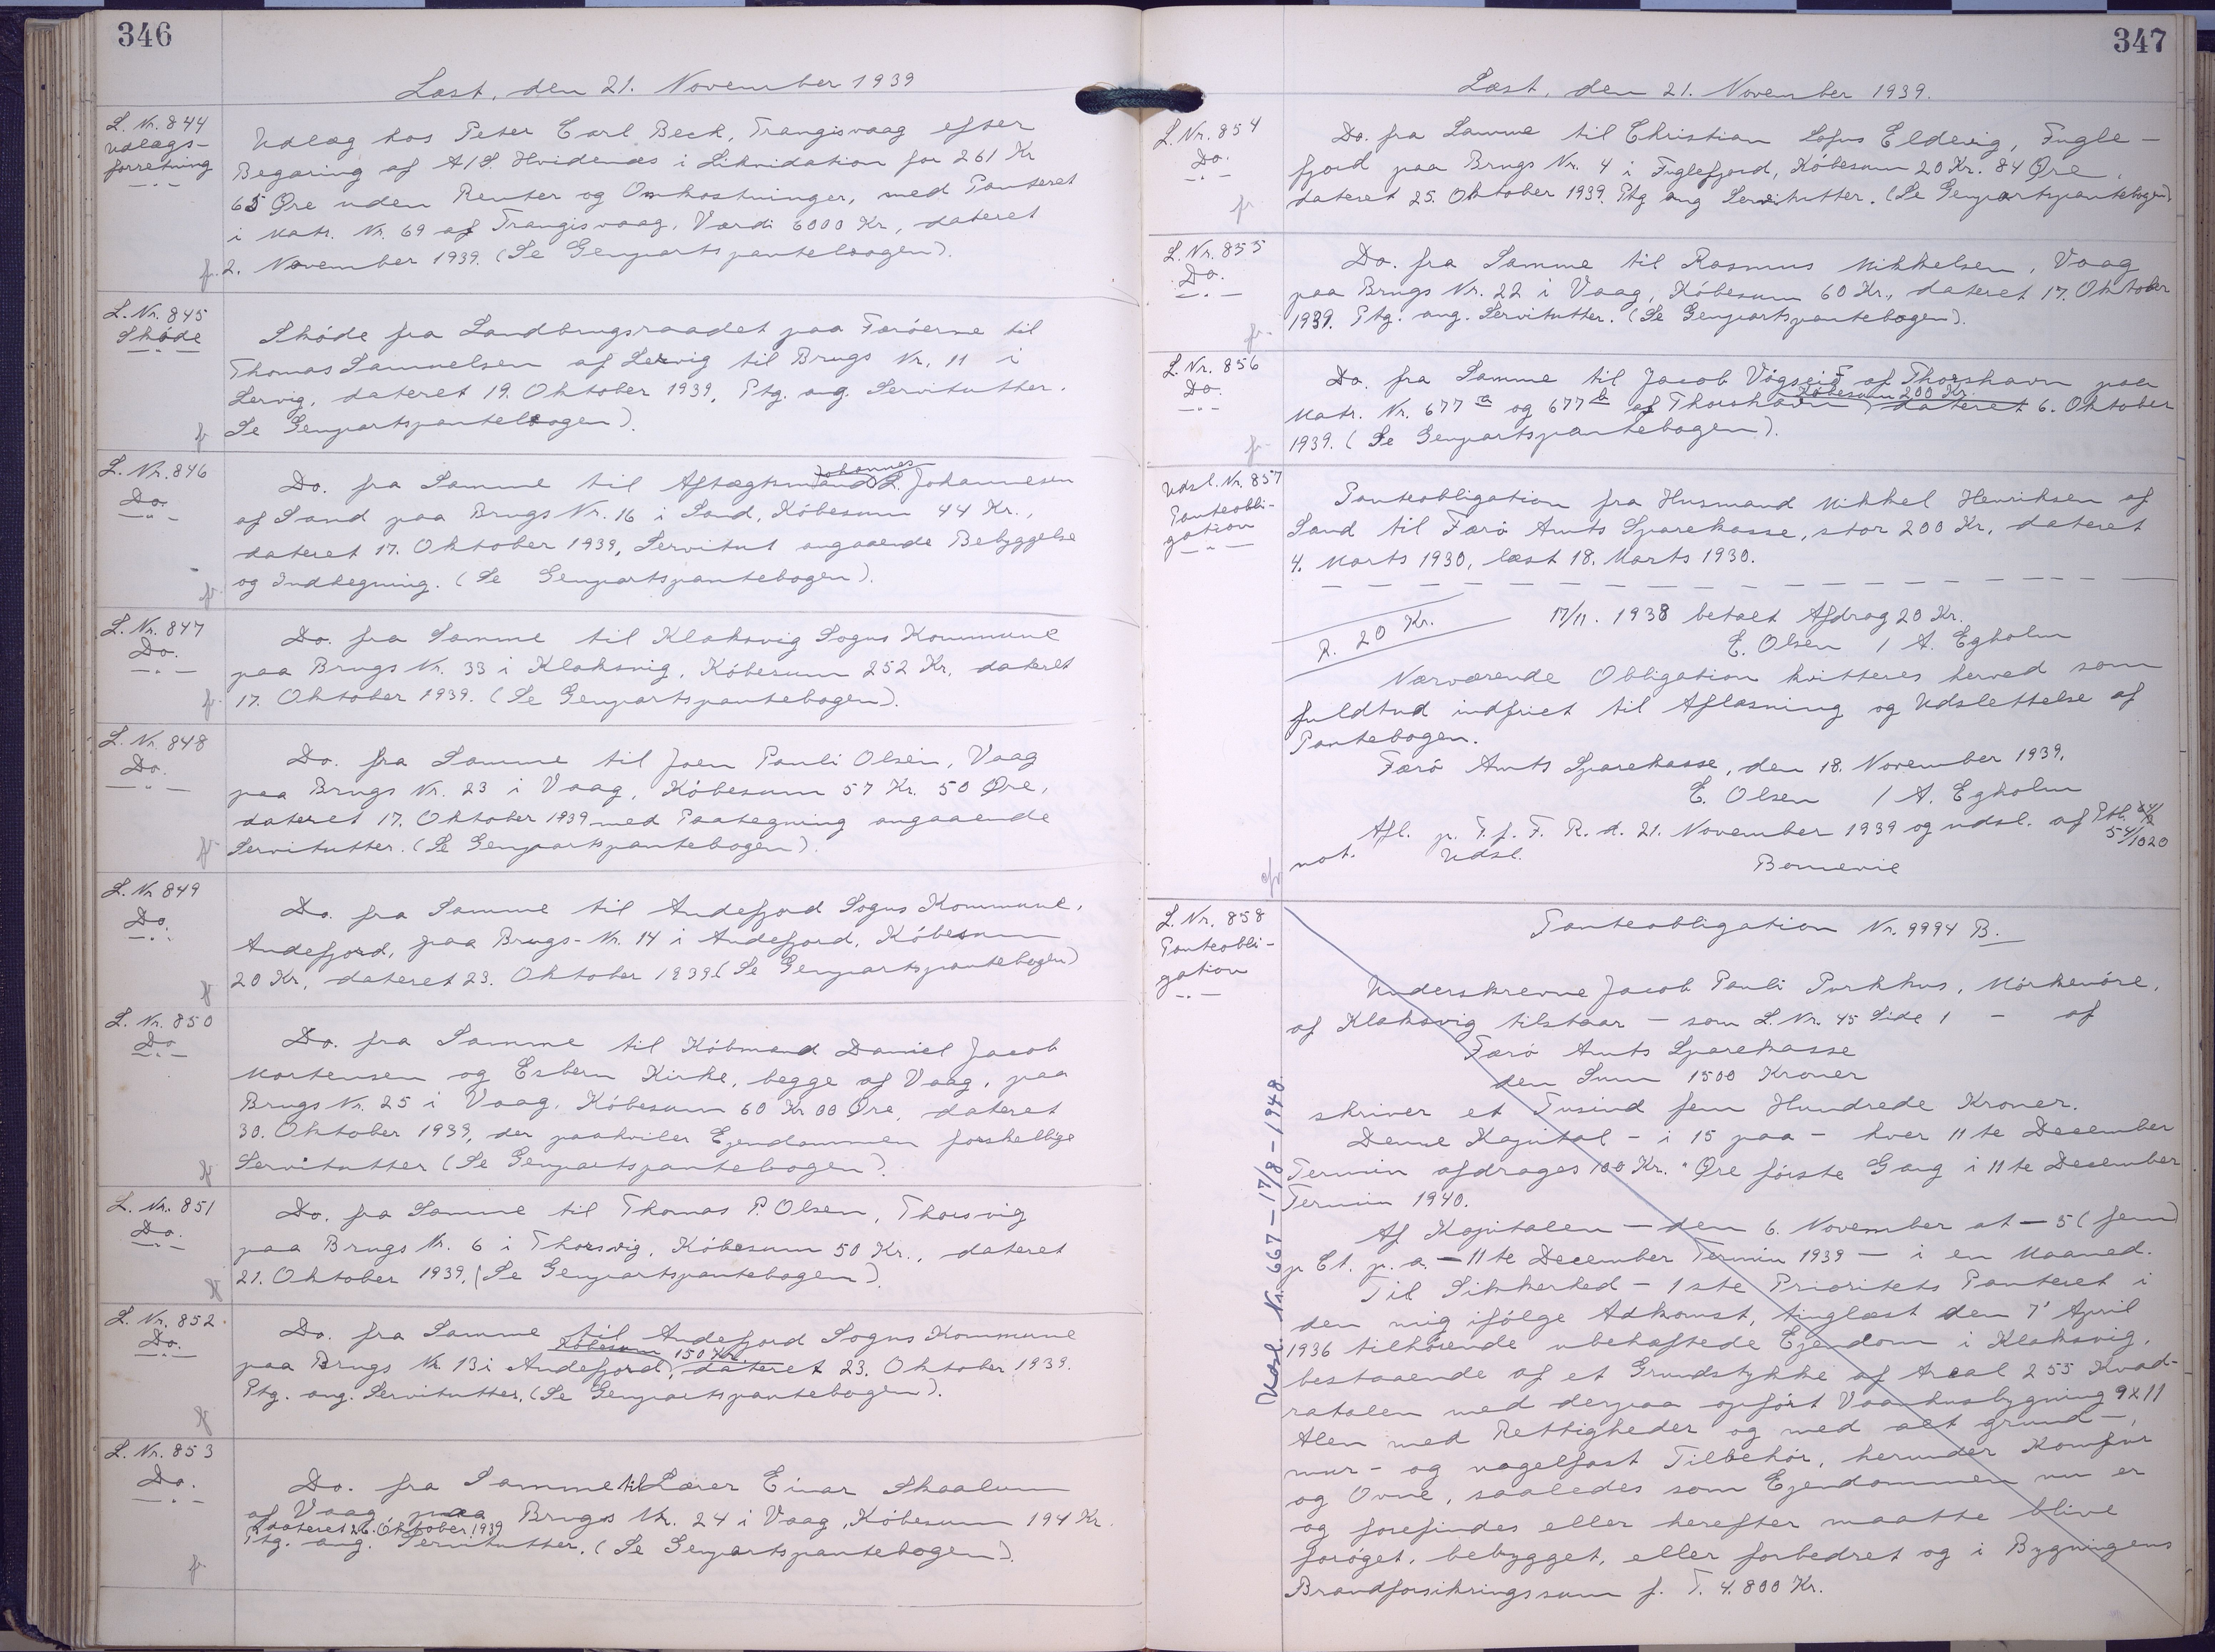 346
Læst, den 21. November 1939
L. Nr. 844
Udlægs-
forretning
Udlæg hos Peter Carl Beck, Trangisvaag efter
Begæring af A/S. Hvidenæs i Likvidation for 261 Kr
65 Øre uden Renter og Omkostninger, med Panteret
i Matr. Nr. 69 af Trangisvaag. Værdi 6000 Kr, dateret
2. November 1939. (Se Genpartspantebogen).
L. Nr. 845
Skøde
Skøde fra Landbrugsraadet paa Færøerne til
Thomas Samuelsen af Lervig til Brugs Nr. 11 i
Lervig, dateret 19. Oktober 1939, Ptg. ang. Servitutter.
Se Genpartspantebogen).
L. Nr. 846
Do.
Do. fra Samme til Aftægtsmand Johannes L. Johannesen
af Sand paa Brugs Nr. 16 i Sand, Købesum 44 Kr.,
dateret 17. Oktober 1939, Servitut angaaende Bebyggelse
og Indhegning. (Se Genpartspantebogen).
L. Nr. 847
Do.
Do. fra Samme til Klaksvig Sogns Kommune
paa Brugs Nr. 33 i Klaksvig, Købesum 252 Kr, dateret
17. Oktober 1939. (Se Genpartspantebogen).
L. Nr. 848
Do.
Do. fra Samme til Joen Pauli Olsen, Vaag
paa Brugs Nr. 23 i Vaag, Købesum 57 Kr. 50 Øre,
dateret 17. Oktober 1939 med Paategning angaaende
Servitutter. (Se Genpartspantebogen).
L. Nr 849
Do.
Do. fra Samme til Andefjord Sogns Kommune,
Andefjord, paa Brugs-Nr. 14 i Andefjord, Købesum
20 Kr, dateret 23. Oktober 1939. (Se Genpartspantebogen)
L. Nr. 850
Do
Do. fra Samme til Købmand Daniel Jacob
Mortensen og Esbern Kirke, begge af Vaag, paa
Brugs Nr. 25 i Vaag, Købesum 60 Kr 00 Øre, dateret
30. Oktober 1939, der paahviler Ejendommen forskellige
Servitutter (Se Genpartspantebogen).
L. Nr. 851
Do.
Do. fra Samme til Thomas P. Olsen, Thorsvig
paa Brugs Nr. 6 i Thorsvig, Købesum 50 Kr., dateret
21. Oktober 1939. (Se Genpartspantebogen).
L. Nr. 852.
Do.
Do. fra Samme til Andefjord Sogns Kommune
Købesum 150 Kr.
paa Brugs Nr. 13 i Andefjord, dateret 23. Oktober 1939.
Ptg. ang. Servitutter. (Se Genpartspantebogen).
L. Nr. 853
Do.
Do. fra Samme til Lærer Einar Skaalum
af Vaag paa Brugs Nr. 24 i Vaag, Købesum 194 Kr.
dateret 26. Oktober 1939
Ptg. ang. Servitutter. (Se Genpartspantebogen).
347
Læst, den 21. November 1939.
L. Nr. 854
Do.
Do. fra Samme til Christian Sofus Eldevig, Fugle-
fjord paa Brugs Nr. 4 i Fuglefjord, Købesum 20 Kr. 84 Øre,
dateret 25. Oktober 1939. Ptg ang Servitutter. (Se Genpartspantebogen)
L. Nr. 855
Do.
Do. fra Samme til Rasmus Mikkelsen, Vaag
paa Brugs Nr. 22 i Vaag, Købesum 60 Kr., dateret 17. Oktober
1939. Ptg. ang. Servitutter. (Se Genpartspantebogen).
L. Nr. 856
Do.
Do. fra Samme til Jacob Vágseið af Thorshavn paa
Købesum 200 Kr.
Matr. Nr. 677 a og 677 b af Thorshavn, dateret 6. Oktober
1939. (Se Genpartspantebogen).
Udsl. Nr. 857
Panteobli-
gation
Panteobligation fra Husmand Mikkel Henriksen af
Sand til Færø Amts Sparekasse, stor 200 Kr, dateret
4. Marts 1930, læst 18. Marts 1930.
R. 20 Kr.
17/11. 1938 betalt Afdrag 20 Kr.
E. Olsen / A. Egholm
Nærværende Obligation kvitteres herved som
fuldtud indfriet til Aflæsning og Udslettelse af
Pantebogen.
Færø Amts Sparekasse, den 18. November 1939,
E. Olsen / A. Egholm
Afl. p. T. f. F. R. d. 21. November 1939 og udsl. af Ptb.
54/1020
not. Udsl.
Bornevie
L. Nr. 858
Panteobli-
gation
Panteobligation Nr. 9994 B.
Underskrevne Jacob Pauli Purkhus, Mørkenøre,
af Klaksvig tilstaar - som L. Nr. 45 Side 1 - af
Færø Amts Sparekasse
den Sum 1500 Kroner
skriver et Tusind fem Hundrede Kroner.
Denne Kapital - i 15 paa - hver 11te December
Termin afdrages 100 Kr. " Øre første Gang i 11te December
Termin 1940.
Af Kapitalen - den 6. November at - 5 (fem)
p Ct. p. a. - 11te December Termin 1939 - i en Maaned.
Til Sikkerhed - 1ste Prioritets Panteret i
den mig ifølge Adkomst, tinglæst den 7' April
1936 tilhørende ubehæftede Ejendom i Klaksvig,
bestaaende af et Grundstykke af Areal 255 Kvad-
ratalen med derpaa opført Vaanhusbygning 9x11
Alen med Rettigheder og med alt grund-,
mur- og nagelfast Tilbehør, herunder Komfur
og Ovne, saaledes som Ejendommen nu er
og forefindes eller herefter maatte blive
forøget, bebygget, eller forbedret og i Bygningens
Brandforsikringssum f. T. 4.800 Kr.
Udsl. Nr. 667 - 17/8 - 1948.